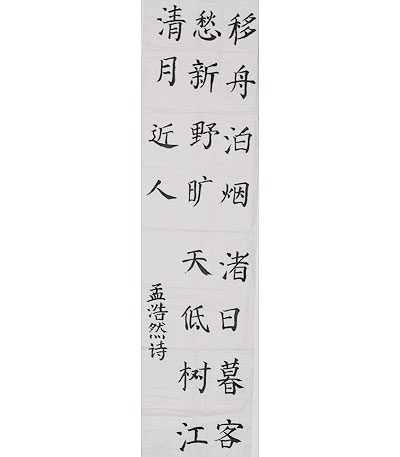 移舟泊烟渚日暮客
愁新野旷天低树江
清月近人
孟浩然诗